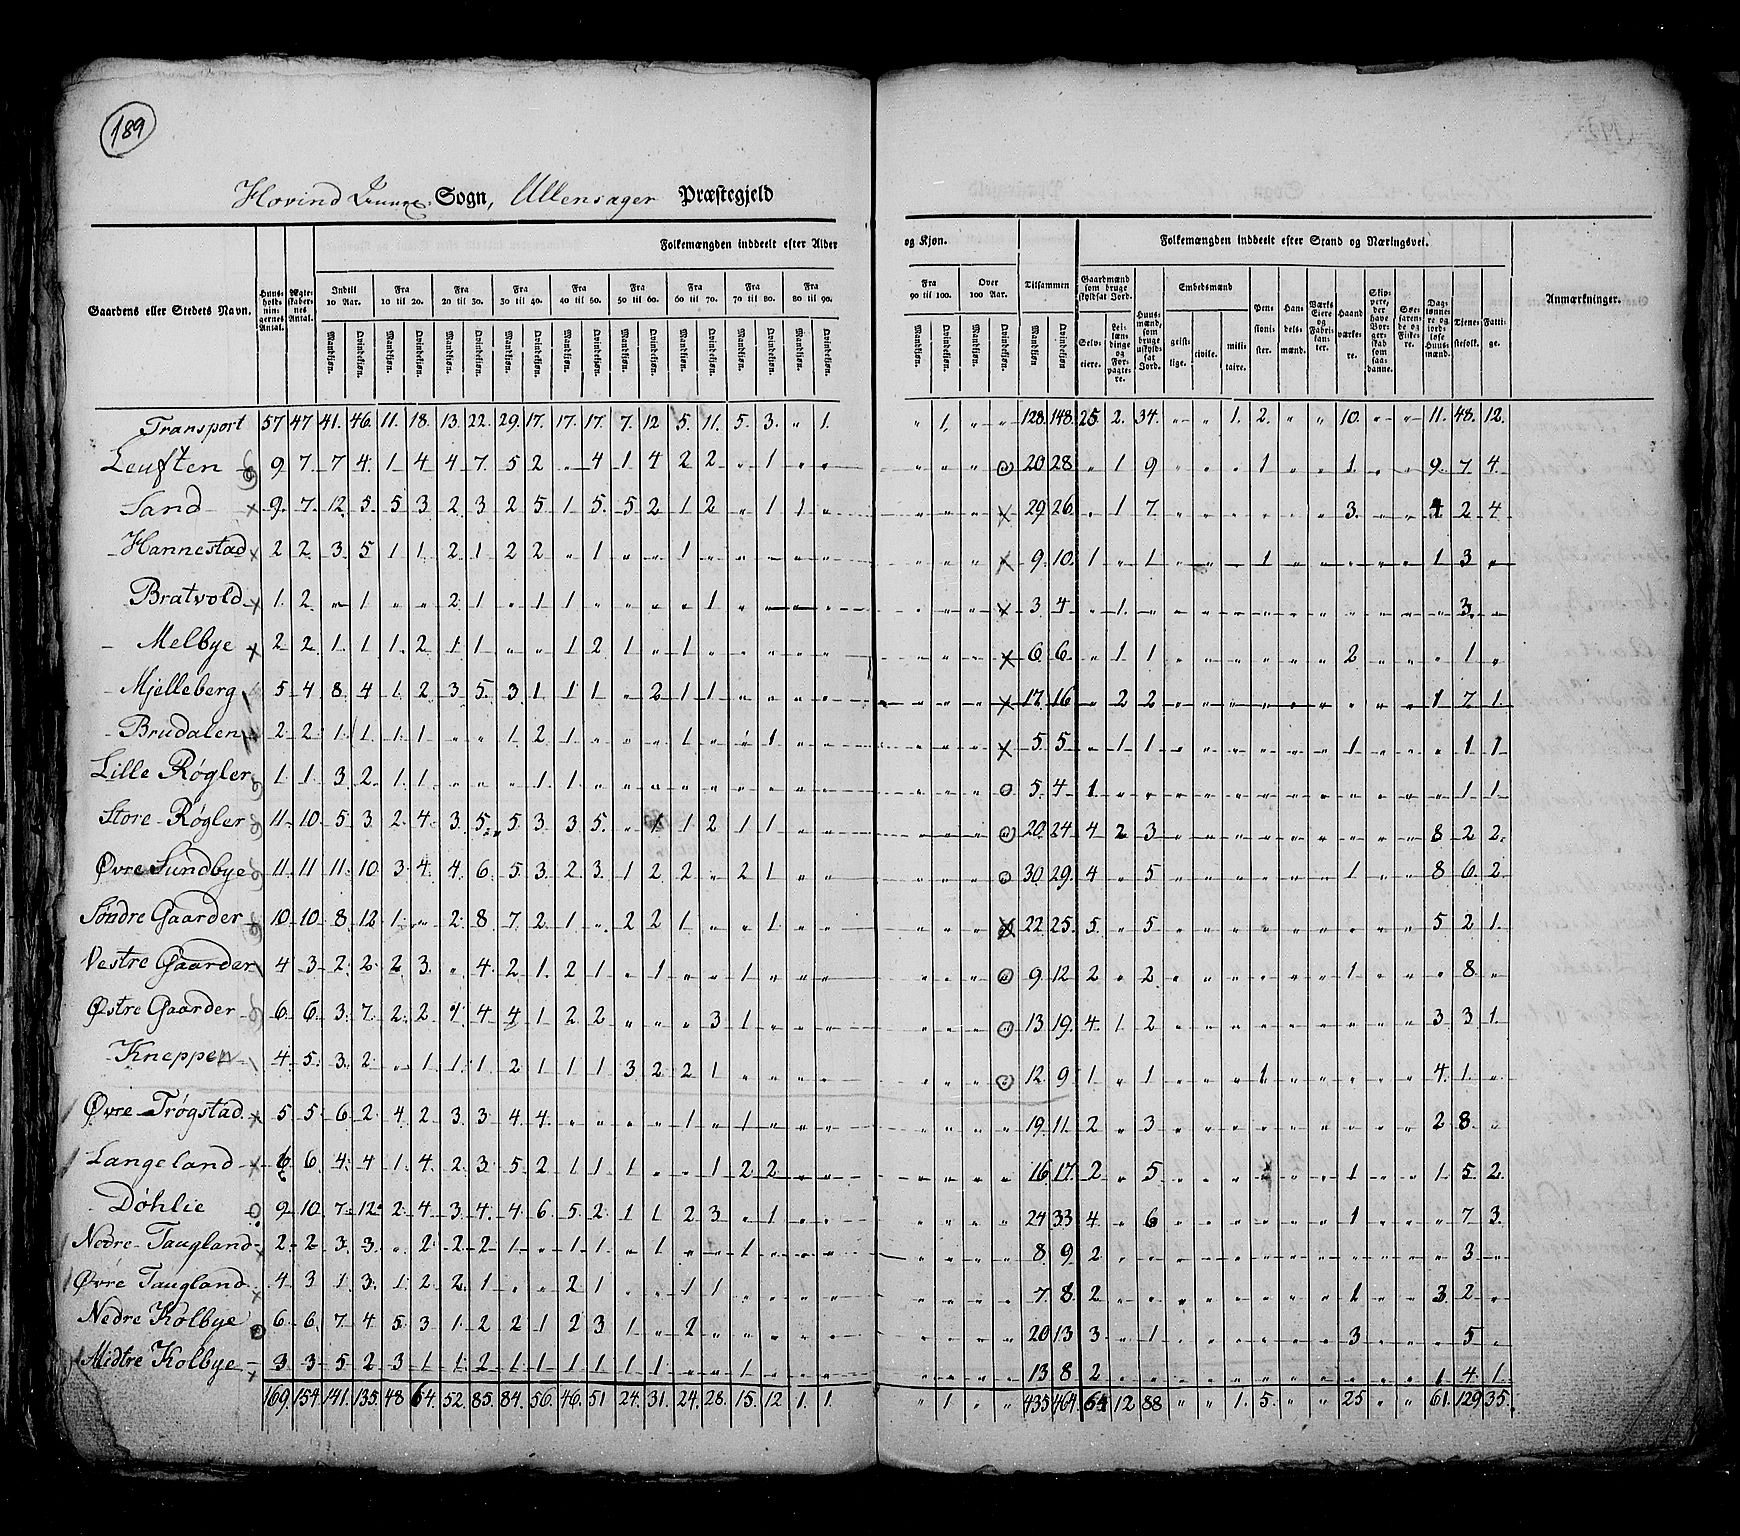 189
Hovind Sogn, Ullensager Præstegjeld
Folkemængden inddeelt efter Alder og Kjøn. Folkemængden inddeelt efter Stand og Næringsvei.
Gaardens eller Stedets Navn. Huus-holdnin-gernes Antal. Ægte-skaber-nes Antal. Indtil 10 Aar. Fra 10 til 20. Fra 20 til 30. Fra 30 til 40. Fra 40 til 50. Fra 50 til 60. Fra 60 til 70. Fra 70 til 80. Fra 80 til 90. Fra 90 til 100. Over 100 Aar. Tilsammen Gaardmænd som bruge skyldsat Jord. Huus-mænd, som bruge uskyld-sat Jord. Embedsmænd Pen-sioni-ster. Han-dels-mænd. Værks Eiere og Fabri-kan-ter. Haand værke-re. Skip-pere, der have Bor-ger-skab som saa-danne. Søe-faren-de og Fiske-re. Dag-lønne-re og jord-løse Huus-mænd. Tjene-stefolk. Fatti-ge. Anmærkninger.
Mandkjøn. Qvindekjøn. Mandkjøn. Qvindekjøn. Mandkjøn. Qvindekjøn. Mandkjøn. Qvindekjøn. Mandkjøn. Qvindekjøn. Mandkjøn. Qvindekjøn. Mandkjøn. Qvindekjøn. Mandkjøn. Qvindekjøn. Mandkjøn. Qvindekjøn. Mandkjøn. Qvindekjøn. Mandkjøn. Qvindekjøn. Mandkjøn. Qvindekjøn. Selv-eiere. Lei-læn-dinge og For-pagte-re. geist-lige. civile. mili-taire.
Transport 57 47 41. 46. 11. 18. 13. 22. 29. 17. 17. 17. 7. 12 5. 11. 5. 3. " 1. " 1. " " 128. 148. 25 2. 34. " " 1. 2. " " 10. " " 11. 48. 12.
Leuften 9 7 7 4 1 4 4 7 5 2 " 4 1 4 2 2 " 1 " " " " " 20 28 " 1 9 " " " 1 " " 1 " " 9 7 4
Sand 9 7 12 5 5 3 2 3 2 5 1 5 5 2 1 2 " 1 1 " " " " 29 26 " 1 7 " " " " " " 3 " " 4 2 4
Hannestad 2 2 3 5 1 1 2 1 2 2 " 1 " " 1 " " " " " " " " 9 10 1 " 1 " " " 1 " " " " " 1 3 "
Bratvold 1 2 " 1 " " 2 1 " 1 1 " " " " 1 " " " " " " " 3 4 " 1 " " " " " " " " " " " 3 "
Melbye 2 2 1 1 1 2 1 1 " " 1 2 1 " 1 " " " " " " " " 6 6 " 1 1 " " " " " " 2 " " " 1 "
Mjelleberg 5 4 8 4 1 2 3 5 3 1 1 1 " 2 1 1 " " " " " " " 17 16 " 2 2 " " " " " " " " " 1 7 1
Brudalen 2 2 1 1 1 1 " " 1 2 1 " " " 1 " " 1 " " " " " 5 5 " 1 1 " " " " " " 1 " " " 1 1
Lille Røgler 1 1 3 2 1 1 " " " 1 1 " " " " " " " " " " " " 5 4 1 " " " " " " " " " " " " 1 1
Store Røgler 11 10 5 3 2 4 3 5 5 3 3 5 " 1 1 2 1 1 " " " " " 20 24 4 2 3 " " " " " " " " " 8 2 2
Øvre Sundbye 11 11 11 10 3 4 4 6 5 3 2 3 1 2 2 " 2 1 " " " " " 30 29 4 " 5 " " " " " " 1 " " 8 6 2
Søndre Gaarder 10 10 8 12 1 " 2 8 7 2 1 " 2 2 1 " " 1 " " " " " 22 25 5 " 5 " " " " " " " " " 5 2 1
Vestre Gaarder 4 3 2 2 2 3 " 4 2 1 2 1 " 1 " " 1 " " " " " " 9 12 2 " 2 " " " " " " 1 " " " 8 "
Østre Gaarder 6 6 3 7 2 2 1 4 4 1 2 2 " " " 3 1 " " " " " " 13 19 4 1 2 " " " " " " " " " 3 3 1
Kneppen 4 5 3 2 " 1 1 1 2 1 1 1 3 2 2 1 " " " " " " " 12 9 1 " 1 " " " 1 " " " " " 4 1 "
Øvre Trøgstad 5 5 6 2 4 2 3 3 4 4 " " " " 1 " 1 " " " " " " 19 11 2 " 3 " " " " " " " " " 2 8 "
Langeland 6 6 4 4 1 4 2 3 5 2 1 1 1 " " 1 2 2 " " " " " 16 17 2 " 5 " " " " " " 1 " " 1 5 2
Døhlie 9 10 7 12 2 4 3 4 4 6 5 2 1 1 2 3 " 1 " " " " " 24 33 4 " 6 " " " " " " 1 " " " 7 3
Nedre Taugland 2 2 3 3 " 2 2 2 1 " 1 1 " 1 " " 1 " " " " " " 8 9 2 " " " " " " " " " " " " 3 "
Øvre Taugland 4 3 1 3 1 2 2 1 " " 2 1 " " 1 1 " " " " " " " 7 8 2 " " " " " " " " 1 " " 3 2 "
Nedre Kolbye 6 6 7 4 5 3 1 2 2 1 2 3 1 " 2 " " " " " " " " 20 13 3 " 1 " " " " " " 3 " " " 5 "
Midtre Kolbye 3 3 5 2 3 1 1 2 1 1 1 1 1 1 " " 1 " " " " " " 13 8 2 " " " " " " " " " " " 1 4 1
169. 154. 141. 135. 48 64. 52. 85. 84. 56. 46. 51 24. 31. 24. 28. 15. 12 1. 1. " 1 " " 435 464 64 12 88 " " 1. 5. " " 25 " " 61. 129 35.